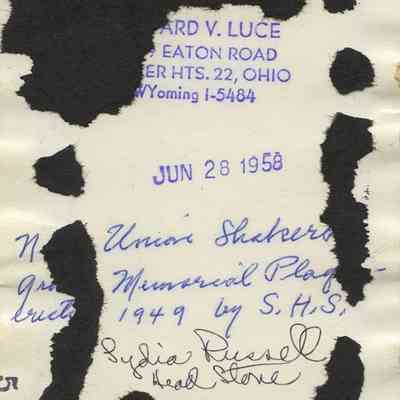 ARD V. LUCE
EATON ROAD
ER HTS. 22, OHIO
WYoming 1-5484
JUN 28 1958
N Union Shakers
gra Memorial Plaq-
erect 1949 by S.H.S.
Lydia Russell
Head Stone